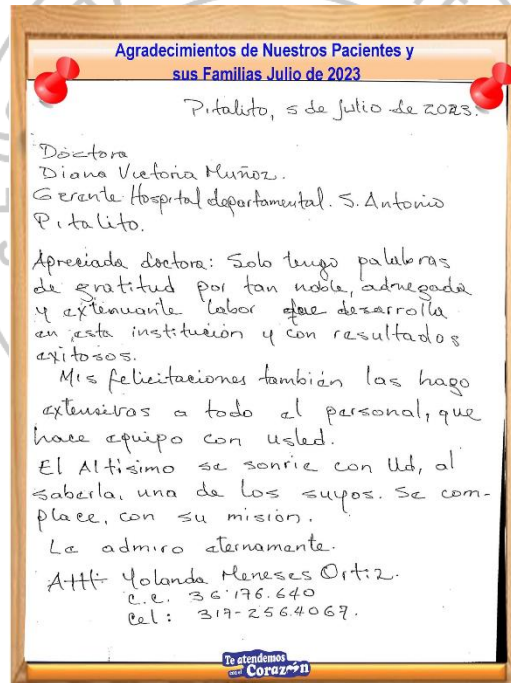 Agradecimientos de Nuestros Pacientes y
sus Familias Julio de 2023
Pitalito, 5 de Julio de 2023.
Doctora
Diana Victoria Muñoz.
Gerente Hospital departamental. S. Antonio
Pitalito.
Apreciada doctora: Solo tengo palabras
de gratitud por tan noble, adnegada
y extenuante labor que desarrolla
en esta institución y con resultados
exitosos.
Mis felicitaciones también las hago
extensivas a todo el personal, que
hace equipo con usted.
El Altísimo se sonríe con Ud, al
saberla, una de los suyos. Se com-
place, con su misión.
La admiro eternamente.
Att- Yolanda Meneses Ortiz.
c.c. 36'176.640
cel: 317-2564067.
Te atendemos
con el Corazón